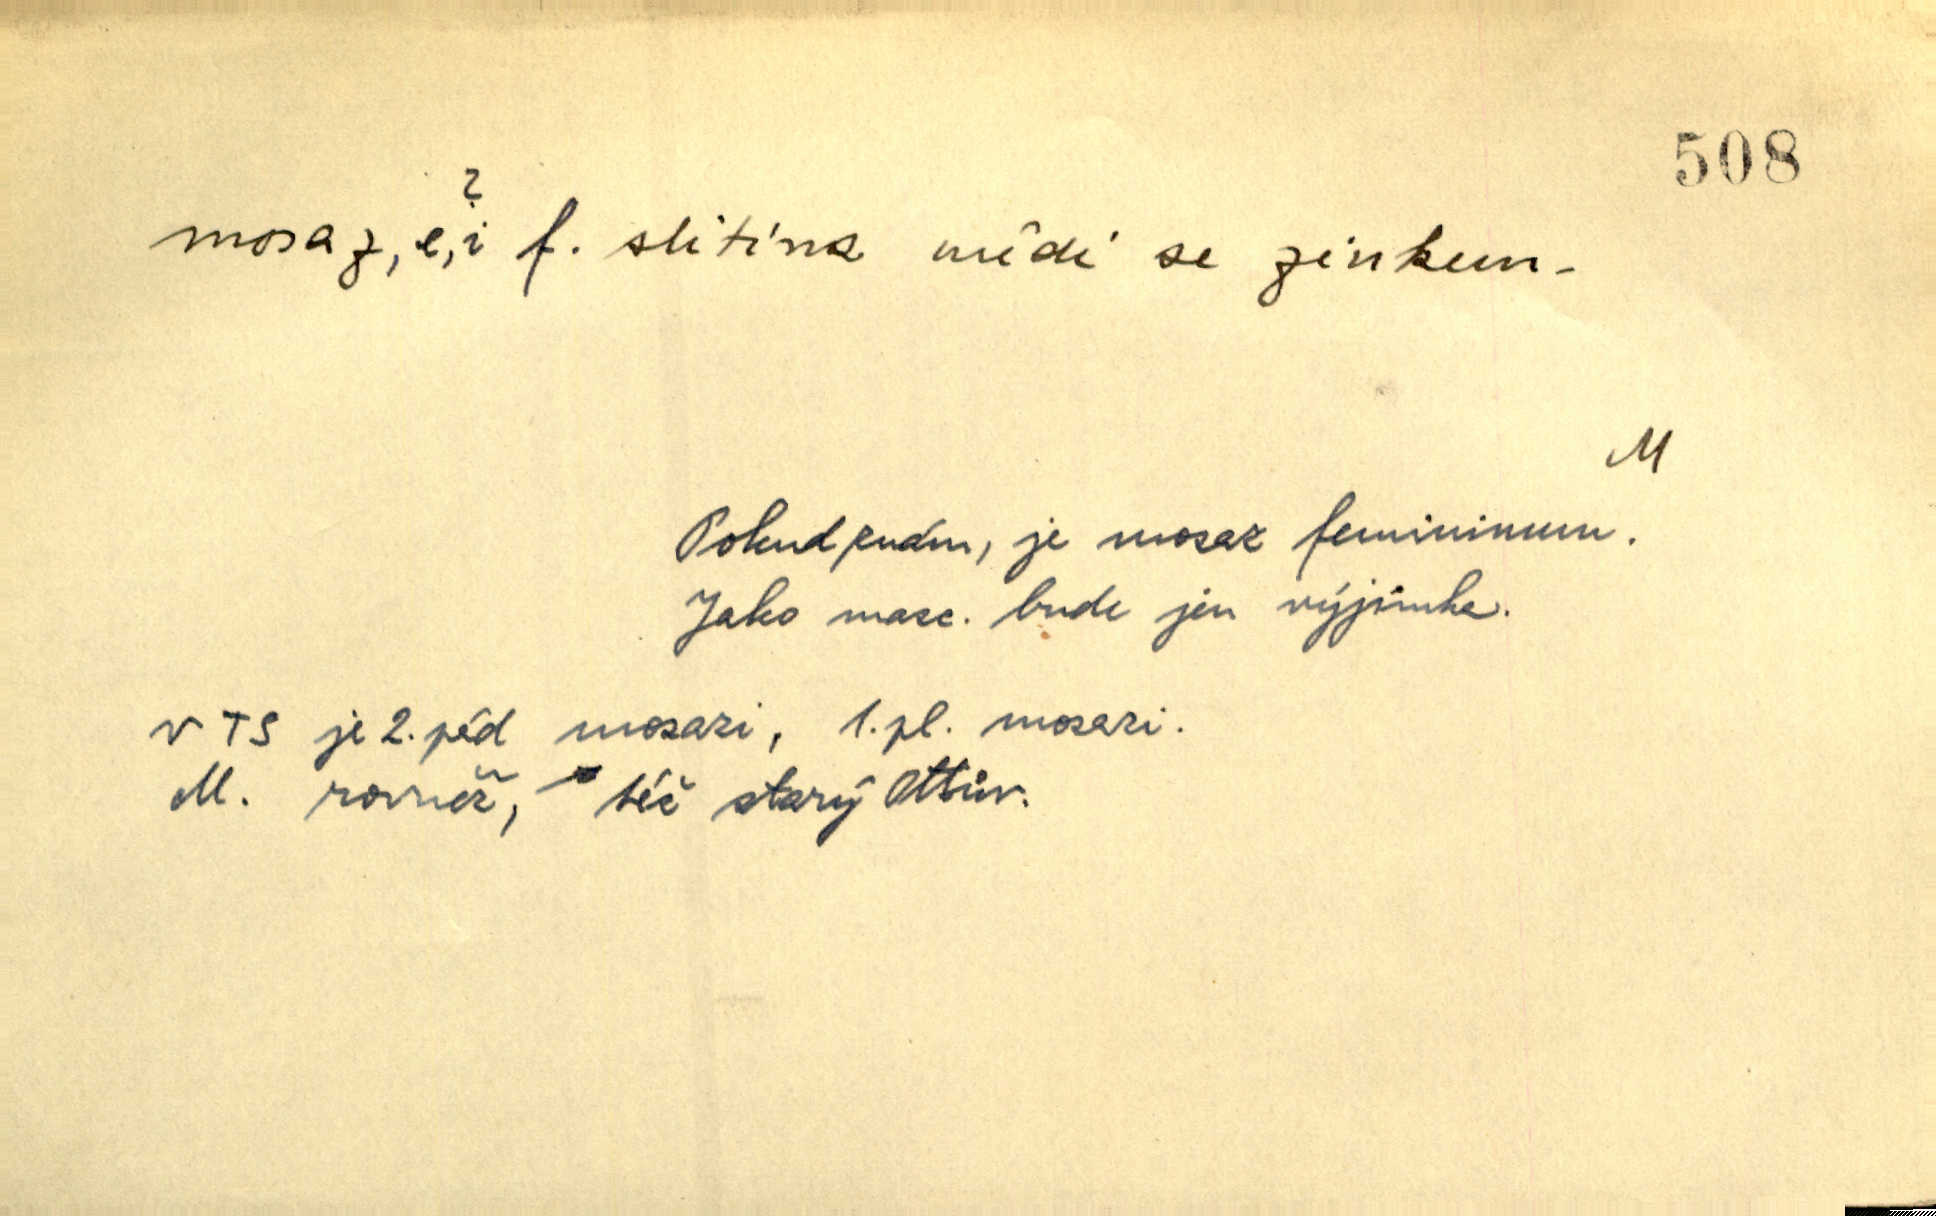 508
?
mosaz, e, i f. slitina mědi se zinkem.
M
Pokud znám, je mosaz femininum.
Jako masc. bude jen výjimka.
v TS je 2. pád mosazi, 1. pl. mosazi.
M. rovněž, též starý Ottův.